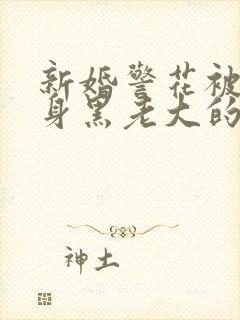 新婚警花被
身黑老大的
神土